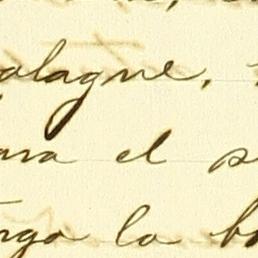 alagne,
ara el s
nga la b